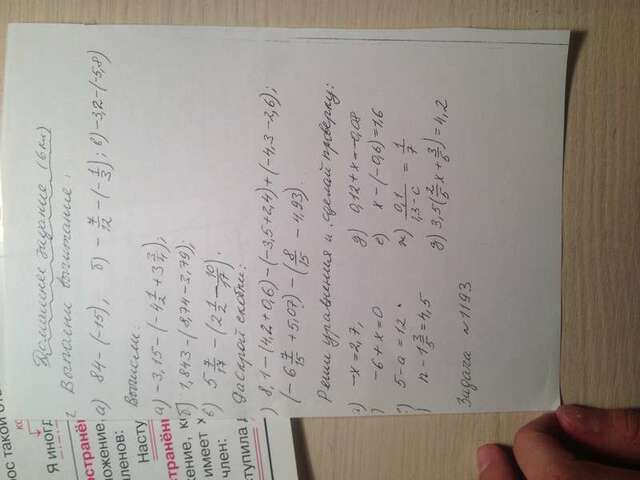 Домашнее задание (6 кл)
Выполни вычитание:
а) 84-(-15); б) -7/12-(-1/3); в) -3,2-(-5,8)
Вычисли:
а) -3,15-(-4 1/2+3 3/4);
б) 1,843-(8,74-2,79);
в) 5 7/17-(2 1/2-10/17).
Раскрой скобки:
) 8,1-(4,2+0,6)-(-3,5+2,4)+(-4,3-2,6);
(-6 7/15+5,07)-(8/15-4,93).
Реши уравнения и сделай проверку:
-x=2,7, д) 0,12+x=-0,08
) -6+x=0 е) x-(-0,6)=1,6
) 5-a=12 ж) 0,1/1,3-c=1/7
) n-1 3/5=4,5 3,5(x+)=4,2
Задача №1193
ос такой
Я иногд
остранён
ложение
аленов:
Насту
странён
жение, к
имеет х
член:
ступила